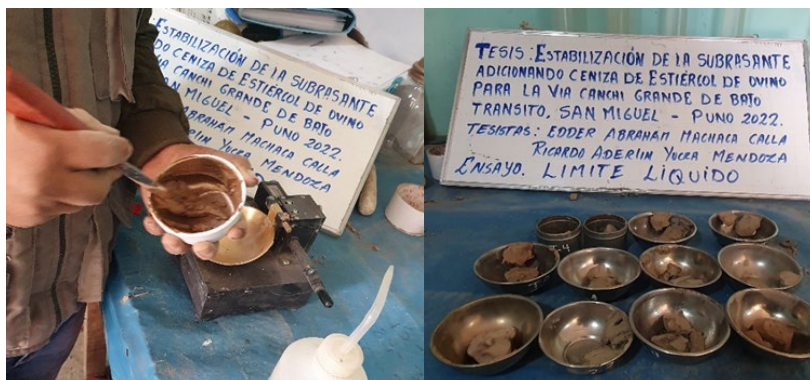 ESTABILIZACIÓN DE LA SUBRASANTE
DO CENIZA DE ESTIÉRCOL DE OVINO
VIA CANCHI GRANDE DE BAJO
SAN MIGUEL - PUNO 2022.
ABRAHAM MACHACA CALLA
ADERLIN YUCRA MENDOZA
TESIS: ESTABILIZACIÓN DE LA SUBRASANTE
ADICIONANDO CENIZA DE ESTIÉRCOL DE OVINO
PARA LA VIA CANCHI GRANDE DE BAJO
TRANSITO, SAN MIGUEL - PUNO 2022.
TESISTAS: EDDER ABRAHAM MACHACA CALLA
RICARDO ADERLIN YUCRA MENDOZA
ENSAYO. LIMITE LÍQUIDO